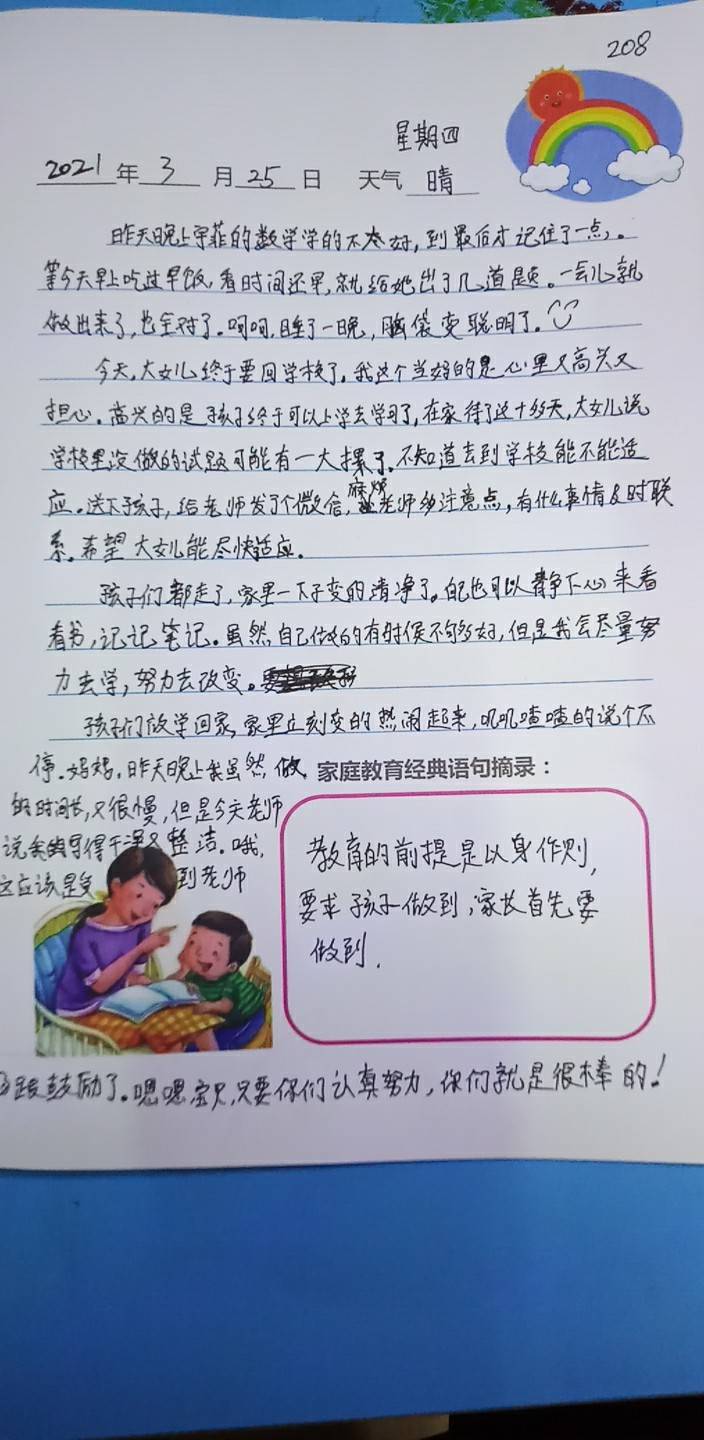 208
星期四
2021年 3 月 25 日 天气 晴
昨天晚上宇菲的数学学的不太好,到最后才记住了一点。
等今天早上吃过早饭,看时间还早,就给她出了几道题。一会儿就
做出来了,也全对了。呵呵,睡了一晚,脑袋变聪明了。
今天,大女儿终于要回学校了。我这个当妈的是心里又高兴又
担心。高兴的是孩子终于可以上学去学习了,在家待了这十多天,大女儿说
学校里没做的试题可能有一大摞了。不知道去到学校能不能适
应。送下孩子,给老师发了个微信,麻烦老师多注意点,有什么事情及时联
系。希望大女儿能尽快适应。
孩子们都走了,家里一下子变的清净了。自己也可以静下心来看
看书,记记笔记。虽然自己做的有时候不够多好,但是我会尽量努
力去学,努力去改变。
孩子们放学回家,家里立刻变的热闹起来,叽叽喳喳的说个不
停。妈妈,昨天晚上我虽然做
的时间长,又很慢,但是今天老师
说我的写得干净又整洁。哦,
这应该是受到老师
家庭教育经典语句摘录:
教育的前提是以身作则,
要求孩子做到,家长首先要
做到.
鼓励了。嗯嗯,宝贝,只要你们认真努力,你们就是很棒的!